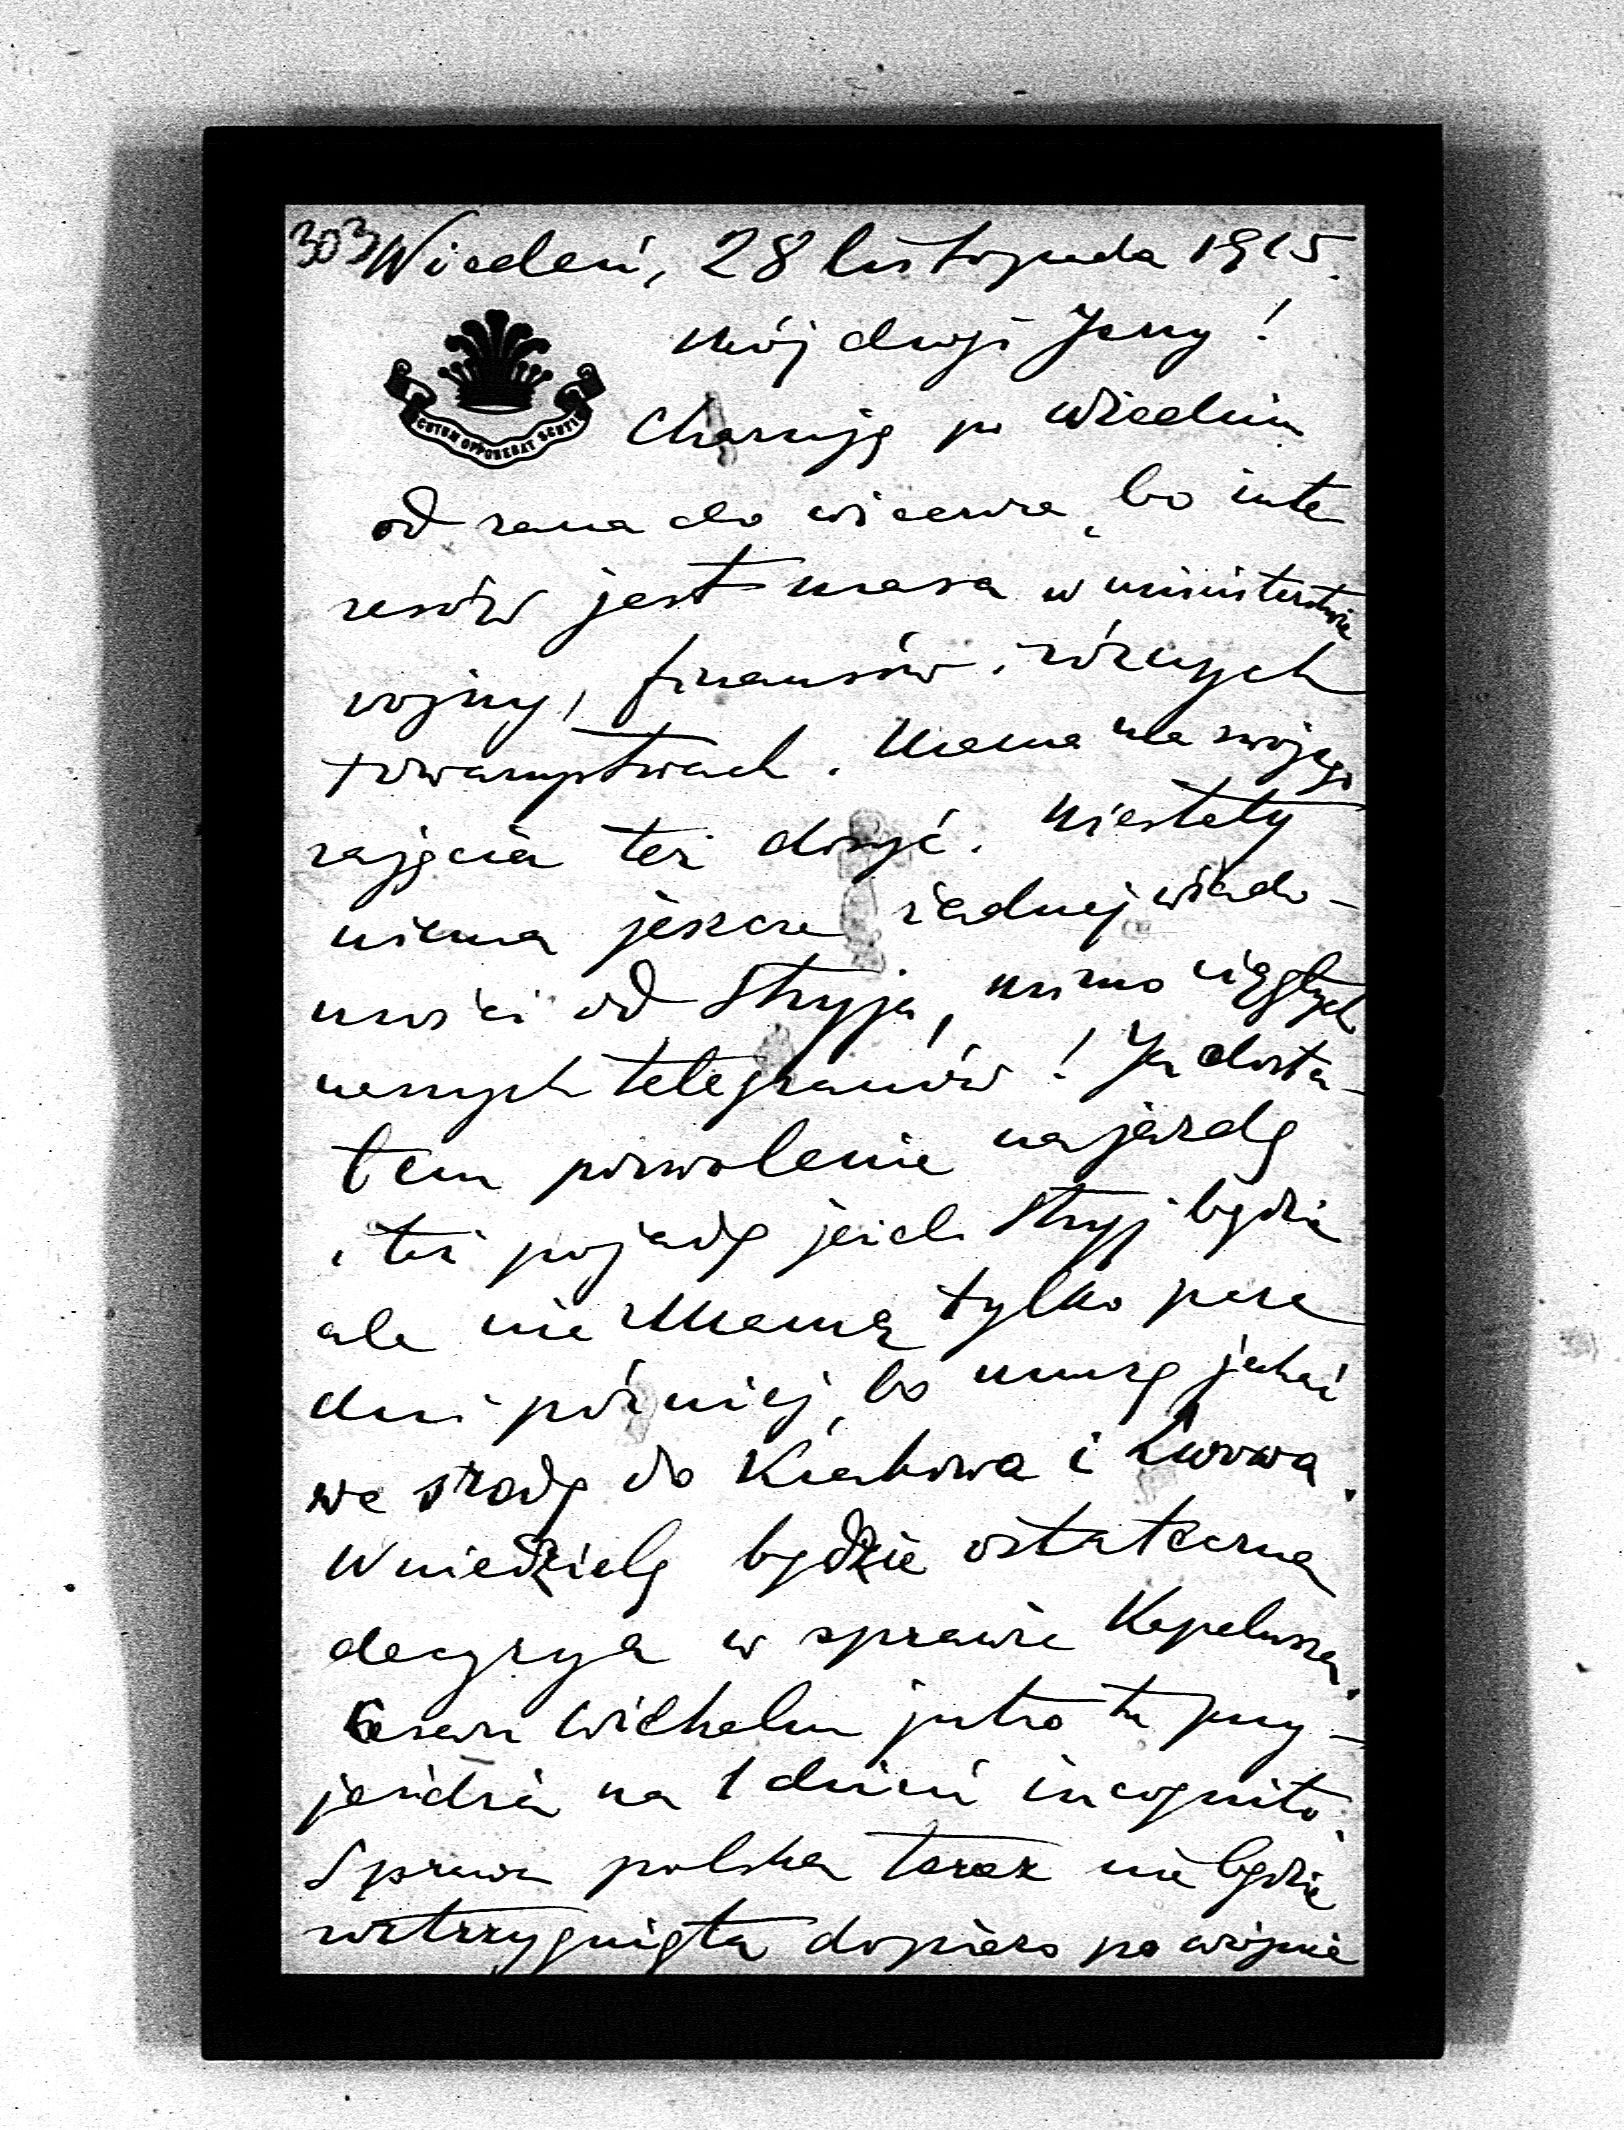 303 Wiedeń, 28 listopada 1915.
Mój drogi Jerzy!
SCUTUM OPPONEBAT SCUTIS
po Wiedniu
od rana do wieczora, bo inte
resów jest masa w ministerstwie
wojny, finansów i różnych
towarzystwach. Mama ma swojego
zajęcia też dosyć. Niestety
niema jeszcze żadnej wiado-
mości od Stryja, mimo ciągłych
naszych telegramów! Ja dosta-
łem pozwolenie na jazdę
i też pojadę jeżeli Stryj będzie
ale nie z Mamą tylko parę
dni później, bo muszę jechać
we środę do Krakowa i Lwowa.
W niedzielę będzie ostateczna
decyzya w sprawie Kapelusza.
Cesarz Wilhelm jutro tu przy-
jeżdża na 1 dzień incognito.
Sprawa polska teraz nie będzie
roztrzygnięta dopiero po wojnie